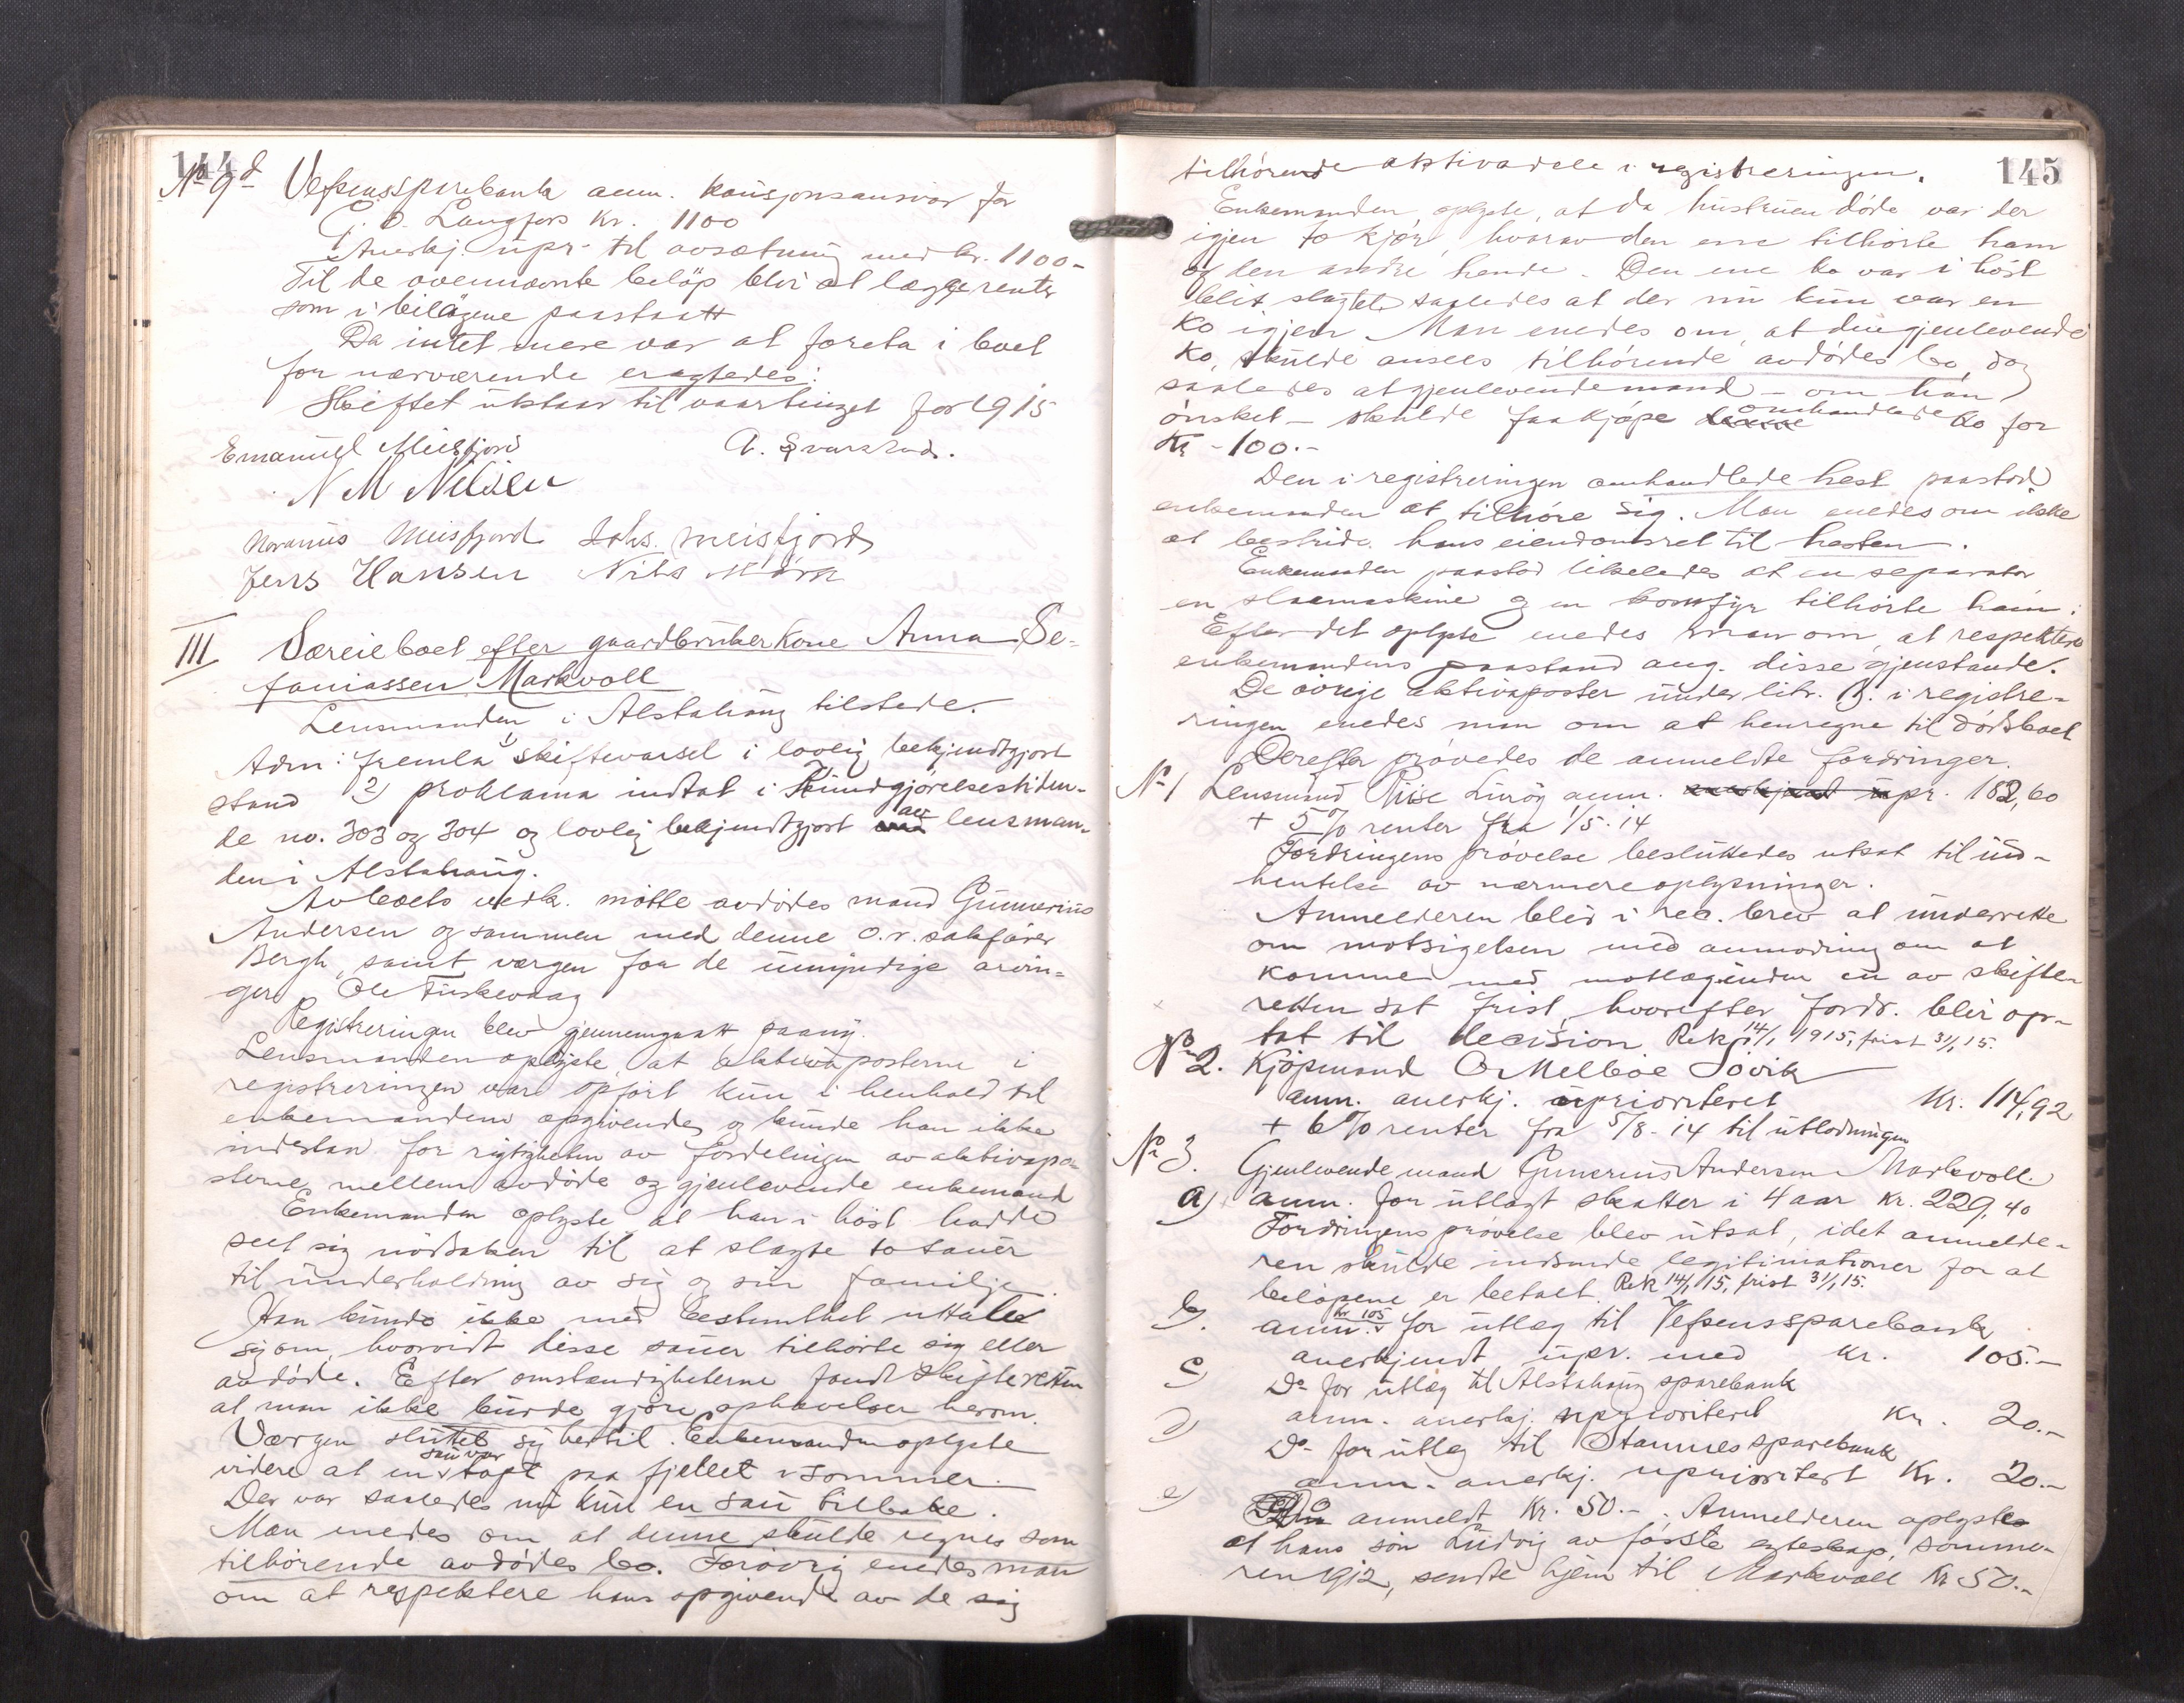 144
No 9d Vefsenssparebank anm. kausjonsansvar for
G. O. Langfors Kr. 1100
Anerkj. upr. til avsætning med kr. 1100-
Til de ovennævnte beløp blir at lægge renter
som i bilagene paastaatt
Da intet mere var at foreta i boet
for nærværende eragtedes:
Skiftet utstaar til vaartinget for 1915
Emanuel Meisfjord A. Svarstad.
N M Nilsen
Meisfjord Johs. Meisfjord
Jens Hansen Nils
III Særeieboet efter gaardbrukerkone Anna Se-
faniassen Markvoll
Lensmanden i Alstahaug tilstede.
Adm: fremla 1) skiftevarsel i lovlig bekjendtgjort
stand 2) proklama indtat i Kundgjørelsestiden-
de no. 303 og 304 og lovlig bekjendtgjort av lensman-
den i Alstahaug.
Av boets vedk. møtte avdødes mand Gunnerius
Andersen og sammen med denne o.r.sakfører
Bergh, samt vergen for de umyndige arvin-
ger Ole
Registreringen blev gjennemgaatt paany.
Lensmanden oplyste, at aktivaposterne i
registreringen var opført kun i henhold til
enkemandens opgivende, og kunde han ikke
indstaa for rigtigheten av fordelingen av aktivapo-
sterne mellem avdøde og gjenlevende enkemand
Enkemanden oplyste at han i høst hadde
seet sig nødsaken til at slagte to sauer
til underholdning av sig og sin familje.
Han kunde ikke med bestemthet uttale
sig om, hvorvidt disse sauer tilhørte sig eller
avdøde. Efter omstændigheterne fandt skifteretten
at man ikke burde gjøre ophævelser herom.
Værgen sluttet sig hertil. Enkemanden oplyste
videre at en sau var tapt paa fjellet i sommer.
Der var saaledes nu kun en sau tilbake.
Man enedes om at denne skulde regnes som
tilhørende avdødes bo. Forøvrig enedes man
om at respektere hans opgivende av de sig
145
tilhørende aktivadele i registreringen.
Enkemanden oplyste, at da hustruen døde var der
igjen to kjør, hvorav den ene tilhørte ham
og den andre hende. Den ene ko var i høst
blit slagtet saaledes at der nu kun var en
ko igjen. Man enedes om, at den gjenlevende
ko, skulde ansees tilhørende avdødes bo, dog
saaledes at gjenlevende mand - om han
ønsket - skulde faa kjøpe omhandlede ko for
Kr - 100.-
Den i registreringen omhandlede hest paastod
enkemanden at tilhøre sig. Man enedes om ikke
at bestride hans eiendomsret til hesten.
Enkemanden paastod likeledes at en separator
en slaamaskine og en komfyr tilhørte ham.
Efter det oplyste enedes man om, at respektere
enkemandens paastand ang. disse gjenstande.
De øvrige aktivaposter under litr. B. i registre-
ringen enedes man om at henregne til dødsboet
Derefter prøvedes de anmeldte fordringer.
No 1 Lensmand Riise Lurøy anm. upr. 182,60
+ 5% renter fra 1/5-14
Fordringens prøvelse besluttedes utsat til ind-
hentelse av nærmere oplysninger.
Anmelderen blir i rec. brev at underrette
om motsigelsen med anmodning om at
komme med motlæg inden en av skifte-
retten sat frist, hvorefter fordr. blir op-
tat til decision Rek 14/1 1915, frist 31/1 15.
No 2. Kjøpmand O Melbøe Søvik
anm. anerkj. uprioritert Kr. 114,92
+ 6% renter fra 5/8-14 til utlodningen
No 3. Gjenlevende mand Gunerius Andersen Markvoll.
a) anm. for utlagt skatter i 4 aar kr. 229,40
Fordringens prøvelse blev utsat, idet anmelde-
ren skulde indsende legitimationer for at
beløpene er betalt. Rek 14/1 15, frist 31/1 15.
b) anm. kr 105 for utlæg til Vefsenssparebank
anerkjendt upr. med kr. 105.-
c) Do for utlæg til Alstahaug sparebank
anm. anerkj. uprioritert Kr. 20.-
d) Do for utlæg til Stamnes sparebank
anm. anerkj. uprioritert Kr. 20.-
e) anmeldt Kr. 50.-. Anmelderen oplyste
at hans søn Ludvig av første egteskap, somme-
ren 1912, sendte hjem til Markvoll kr 50.-